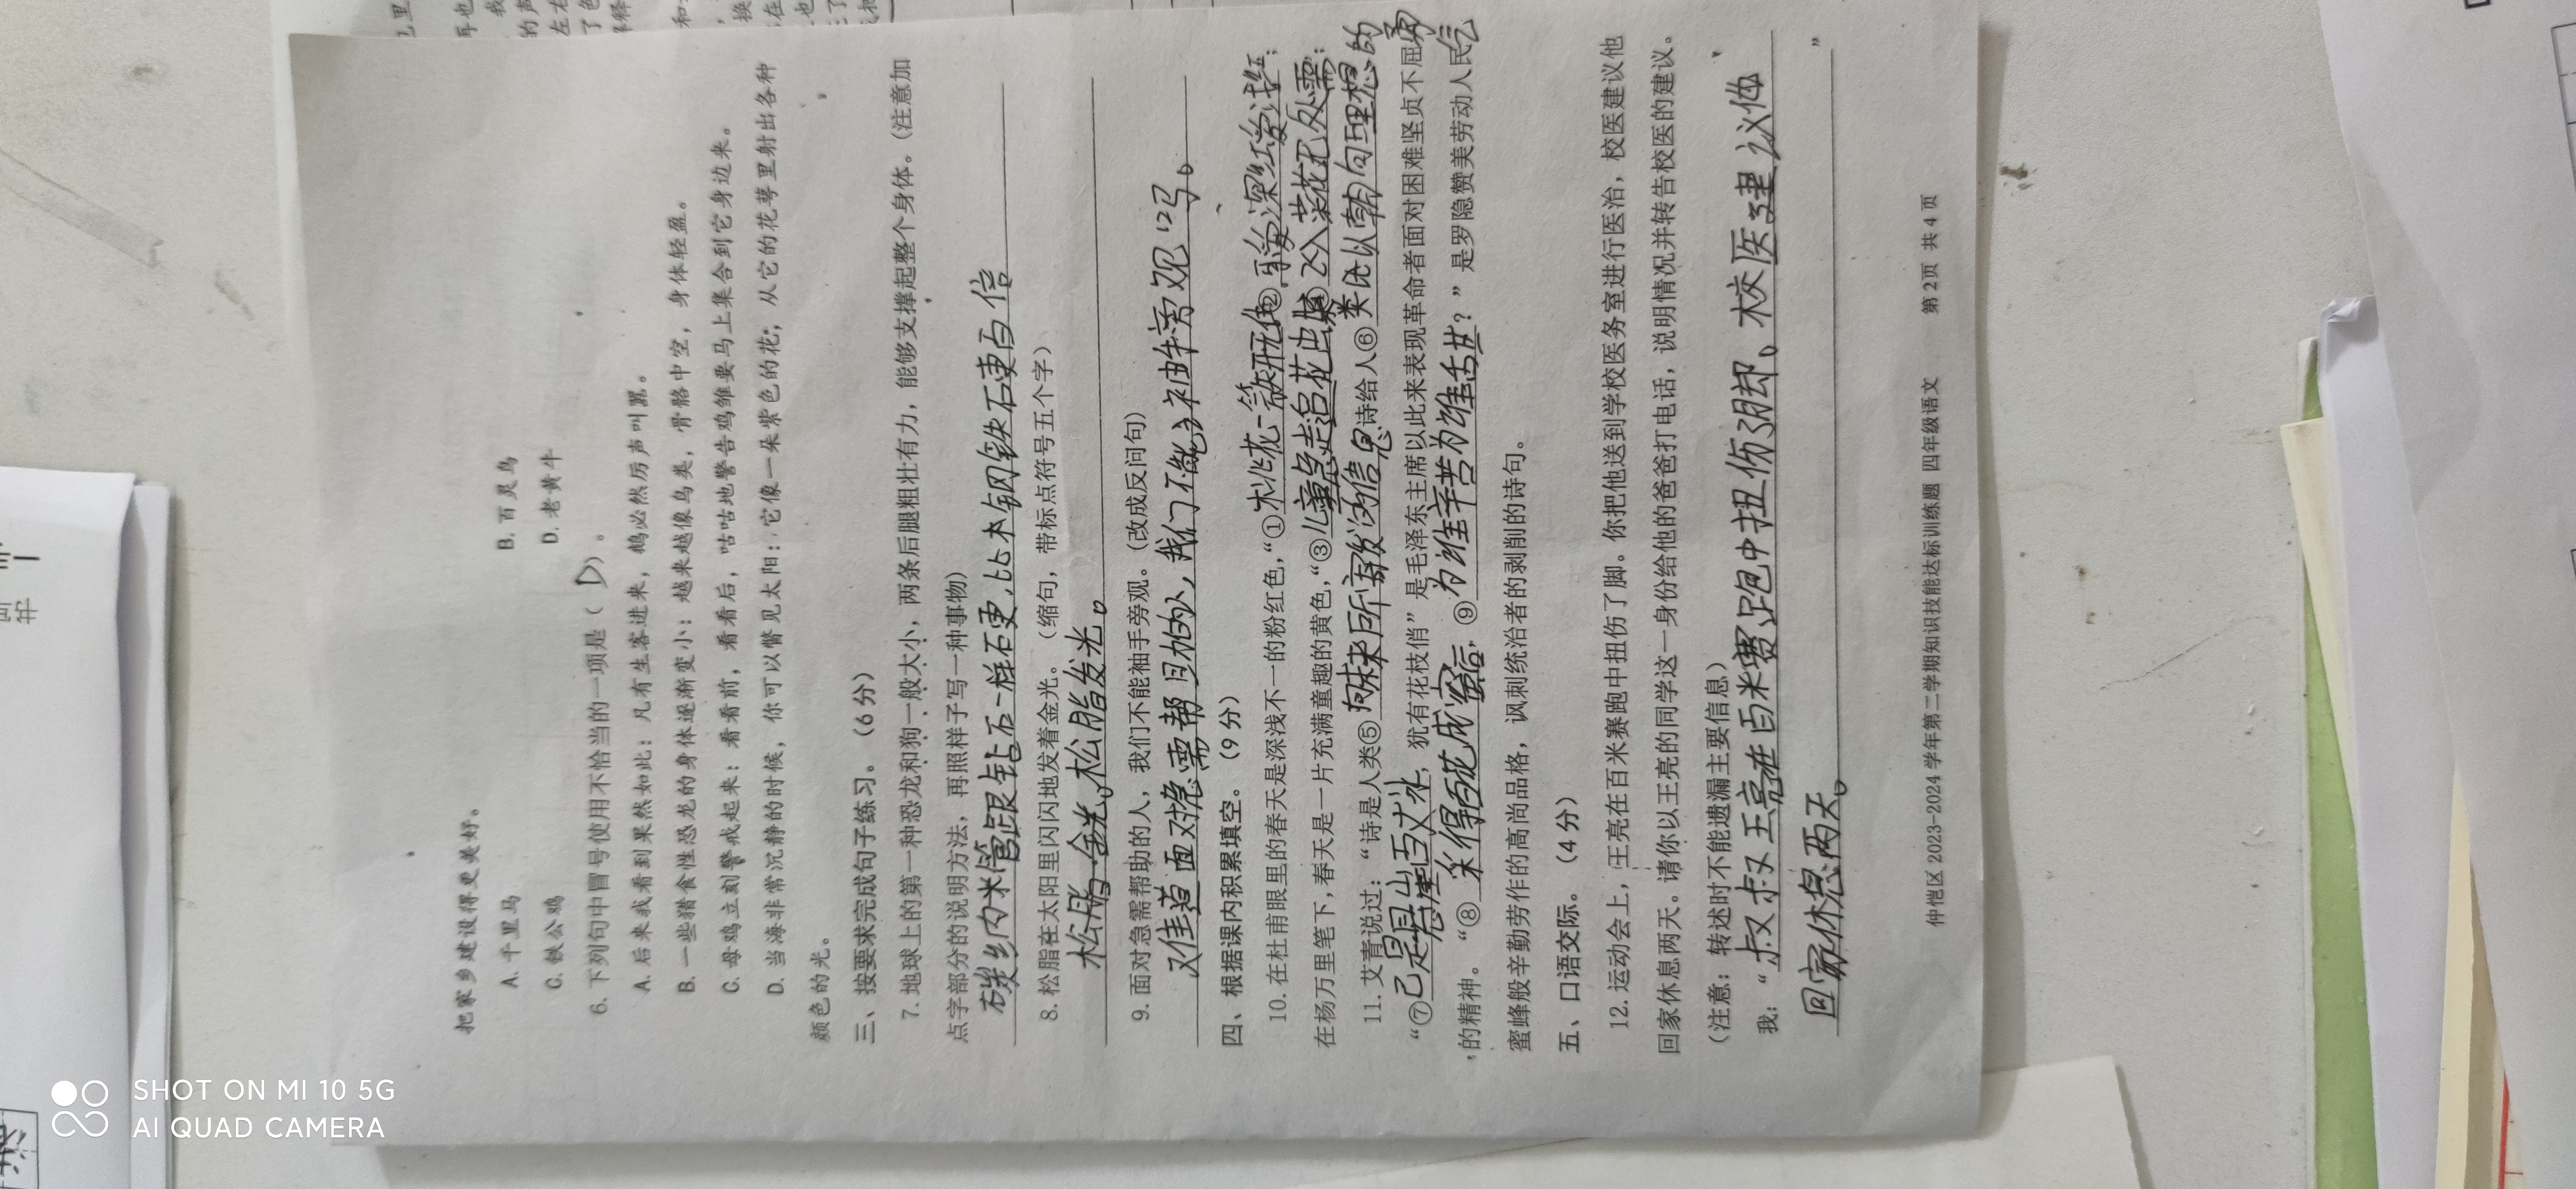 把家乡建设得更美好。
A. 千里马 B. 百灵鸟
C. 铁公鸡 D. 老黄牛
6. 下列句中冒号使用不恰当的一项是( D )。
A. 后来我看到果然如此：凡有生客进来，鹅必然厉声叫嚣。
B. 一些猎食性恐龙的身体逐渐变小：越来越像鸟类，骨骼中空，身体轻盈。
C. 母鸡立刻警戒起来：看看前，看看后，咕咕地警告鸡雏要马上集合到它身边来。
D. 当海非常沉静的时候，你可以瞥见太阳：它像一朵紫色的花；从它的花萼里射出各种
颜色的光。
三、按要求完成句子练习。（6 分）
7. 地球上的第一种恐龙和狗一般大小，两条后腿粗壮有力，能够支撑起整个身体。（注意加
点字部分的说明方法，再照样子写一种事物）
碳纳米管跟钻石一样石更，比钢铁石更百倍
8. 松脂在太阳里闪闪地发着金光。（缩句，带标点符号五个字）
松脂发光。
9. 面对急需帮助的人，我们不能袖手旁观。（改成反问句）
又佳道面对急需帮助的人，我们不能袖手旁观吗。
四、根据课内积累填空。（9 分）
10. 在杜甫眼里的春天是深浅不一的粉红色，“①桃花一簇开无主②可爱深红爱浅红；
在杨万里笔下，春天是一片充满童趣的黄色，“③儿童急走追黄蝶④飞入菜花无处需；
11. 艾青说过：“诗是人类⑤向未来所寄发的信息诗给人⑥类以朝向理想的勇气
“⑦已是悬崖百丈冰，犹有花枝俏”是毛泽东主席以此来表现革命者面对困难坚贞不屈
的精神。“⑧采得百花成蜜后，⑨为谁辛苦为谁甜？”是罗隐赞美劳动人民
蜜蜂般辛勤劳作的高尚品格，讽刺统治者的剥削的诗句。
五、口语交际。（4 分）
12. 运动会上，王亮在百米赛跑中扭伤了脚。你把他送到学校医务室进行医治，校医建议他
回家休息两天。请你以王亮的同学这一身份给他的爸爸打电话，说明情况并转告校医的建议。
（注意：转述时不能遗漏主要信息）
我：“叔叔王亮在百米赛跑中扭伤了脚。校医建议他
回家休息两天。”
仲恺区 2023-2024 学年第二学期知识技能达标训练题 四年级语文 第 2 页 共 4 页
SHOT ON MI 10 5G
AI QUAD CAMERA